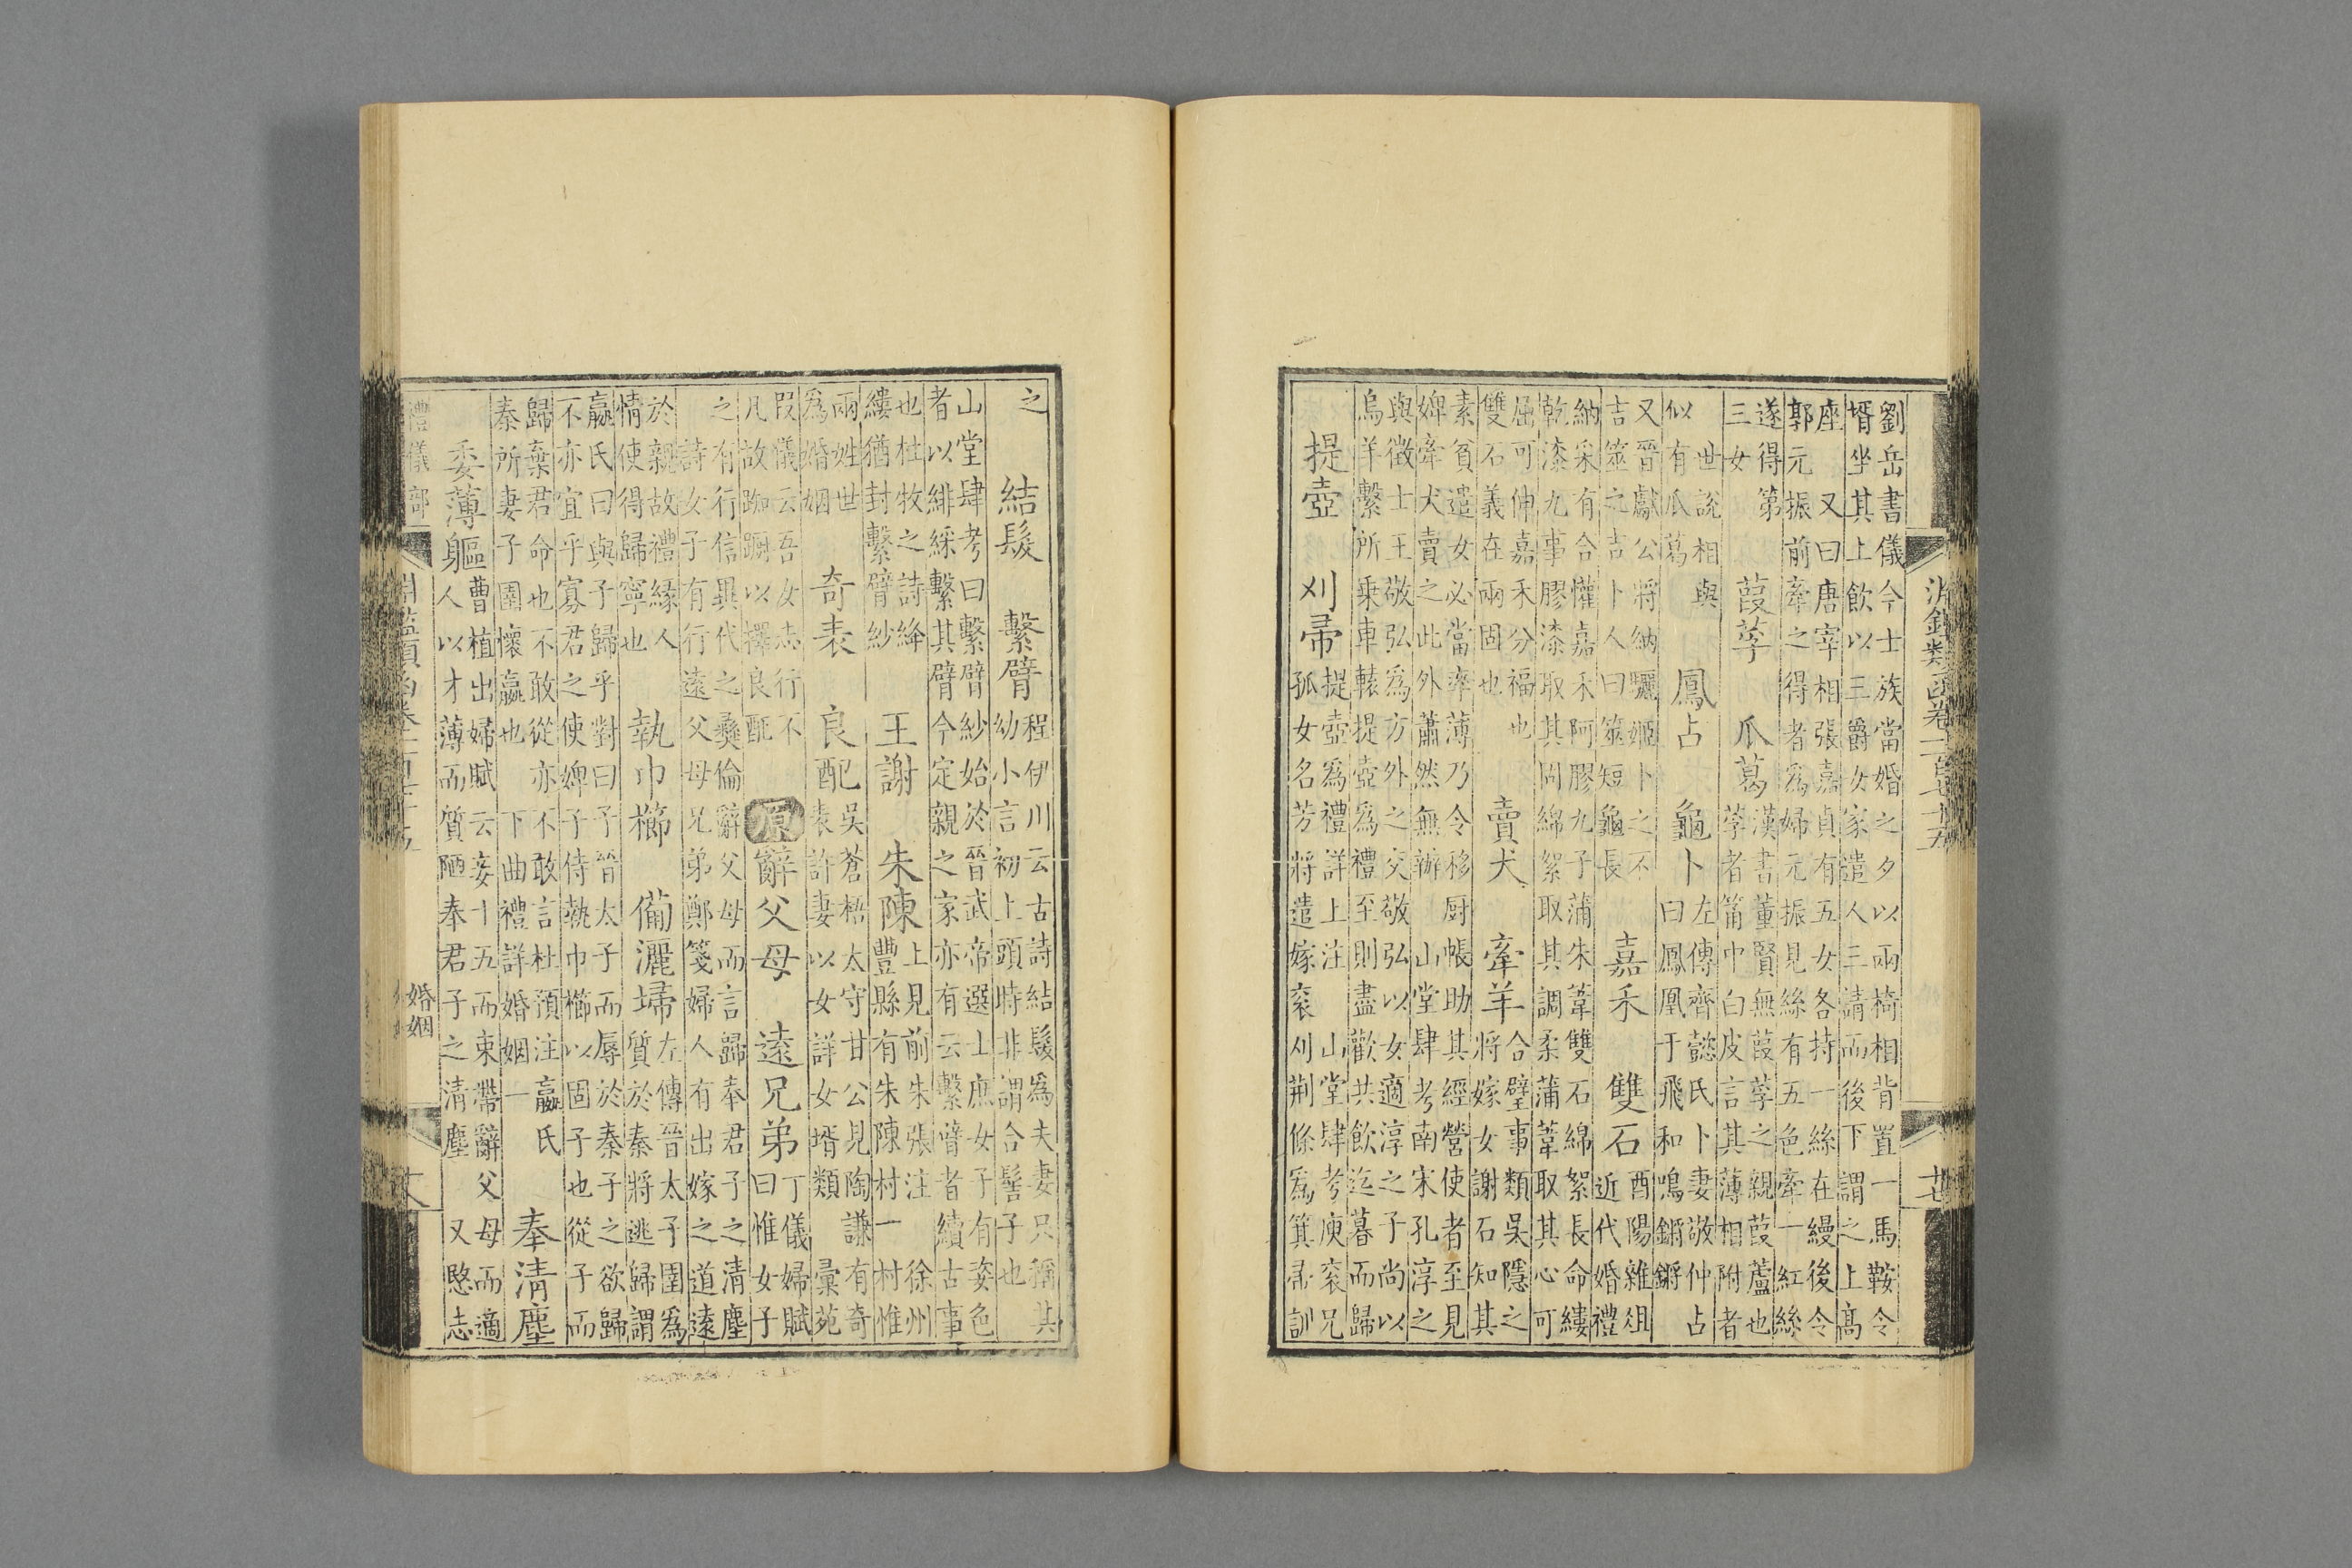 淵鑑類函卷一百七十五　十七
劉岳書儀今士族當婚之夕以兩椅相背置一馬鞍令
壻坐其上飲以三爵女家遣人三請而後下謂之上高
座　又曰唐宰相張嘉貞有五女各持一絲在縵後令
郭元振前牽之得者為婦元振見絲有五色牽一紅絲
遂得第
三女
葭莩　瓜葛
漢書董賢無葭莩之親葭蘆也
莩者筩中白皮言其薄相附者
世説相與
似有瓜葛
鳳占　龜卜
左傳齊懿氏卜妻敬仲占
曰鳳凰于飛和鳴鏘鏘
又晉獻公將納驪姬卜之不
吉筮之吉卜人曰筮短龜長
嘉禾　雙石
酉陽雜俎
近代婚禮
納采有合懽嘉禾阿膠九子蒲朱葦雙石綿絮長命縷
乾漆九事膠漆取其固綿絮取其調柔蒲葦取其心可
屈可伸嘉禾分福也
雙石義在兩固也
賣犬　牽羊
合璧事類吳隱之
將嫁女謝石知其
素貧遣女必當率薄乃令移厨帳助其經營使者至見
婢牽犬賣之此外蕭然無辦　山堂肆考南宋孔淳之
與徵士王敬弘為方外之交敬弘以女適淳之子尚以
烏羊繫所乘車轅提壺為禮至則盡歡共飲迄暮而歸
提壺　刈帚
提壺為禮詳上注　山堂肆考庾袞兄
孤女名芳將遣嫁袞刈荆條為箕帚訓
之
結髮　繫臂
程伊川云古詩結髮為夫妻只稱其
幼小言初上頭時非謂合髻子也
山堂肆考曰繫臂紗始於晉武帝選士庶女子有姿色
者以緋綵繫其臂今定親之家亦有云繫臂者續古事
也杜牧之詩絳
縷猶封繫臂紗
王謝　朱陳
上見前朱張注　徐州
豐縣有朱陳村一村惟
兩姓世
為婚姻
奇表　良配
吳蒼梧太守甘公見陶謙有奇
表許妻以女詳女壻類　彙苑
叚儀云吾女志行不
凡故踟躕以擇良配
原　辭父母　遠兄弟
丁儀婦賦
曰惟女子
之有行信異代之彝倫辭父母而言歸奉君子之清塵
詩女子有行遠父母兄弟鄭箋婦人有出嫁之道遠
於親故禮緣人
情使得歸寧也
執巾櫛　備灑埽
左傳晉太子圉為
質於秦將逃歸謂
嬴氏曰與子歸乎對曰子晉太子而辱於秦子之欲歸
不亦宜乎寡君之使婢子侍執巾櫛以固子也從子而
歸棄君命也不敢從亦不敢言杜預注嬴氏
秦所妻子圉懷嬴也　下曲禮詳婚姻一
奉清塵
委薄軀
曹植出婦賦云妾十五而束帶辭父母而適
人以才薄而質陋奉君子之清塵　又愍志
禮儀部　婚姻